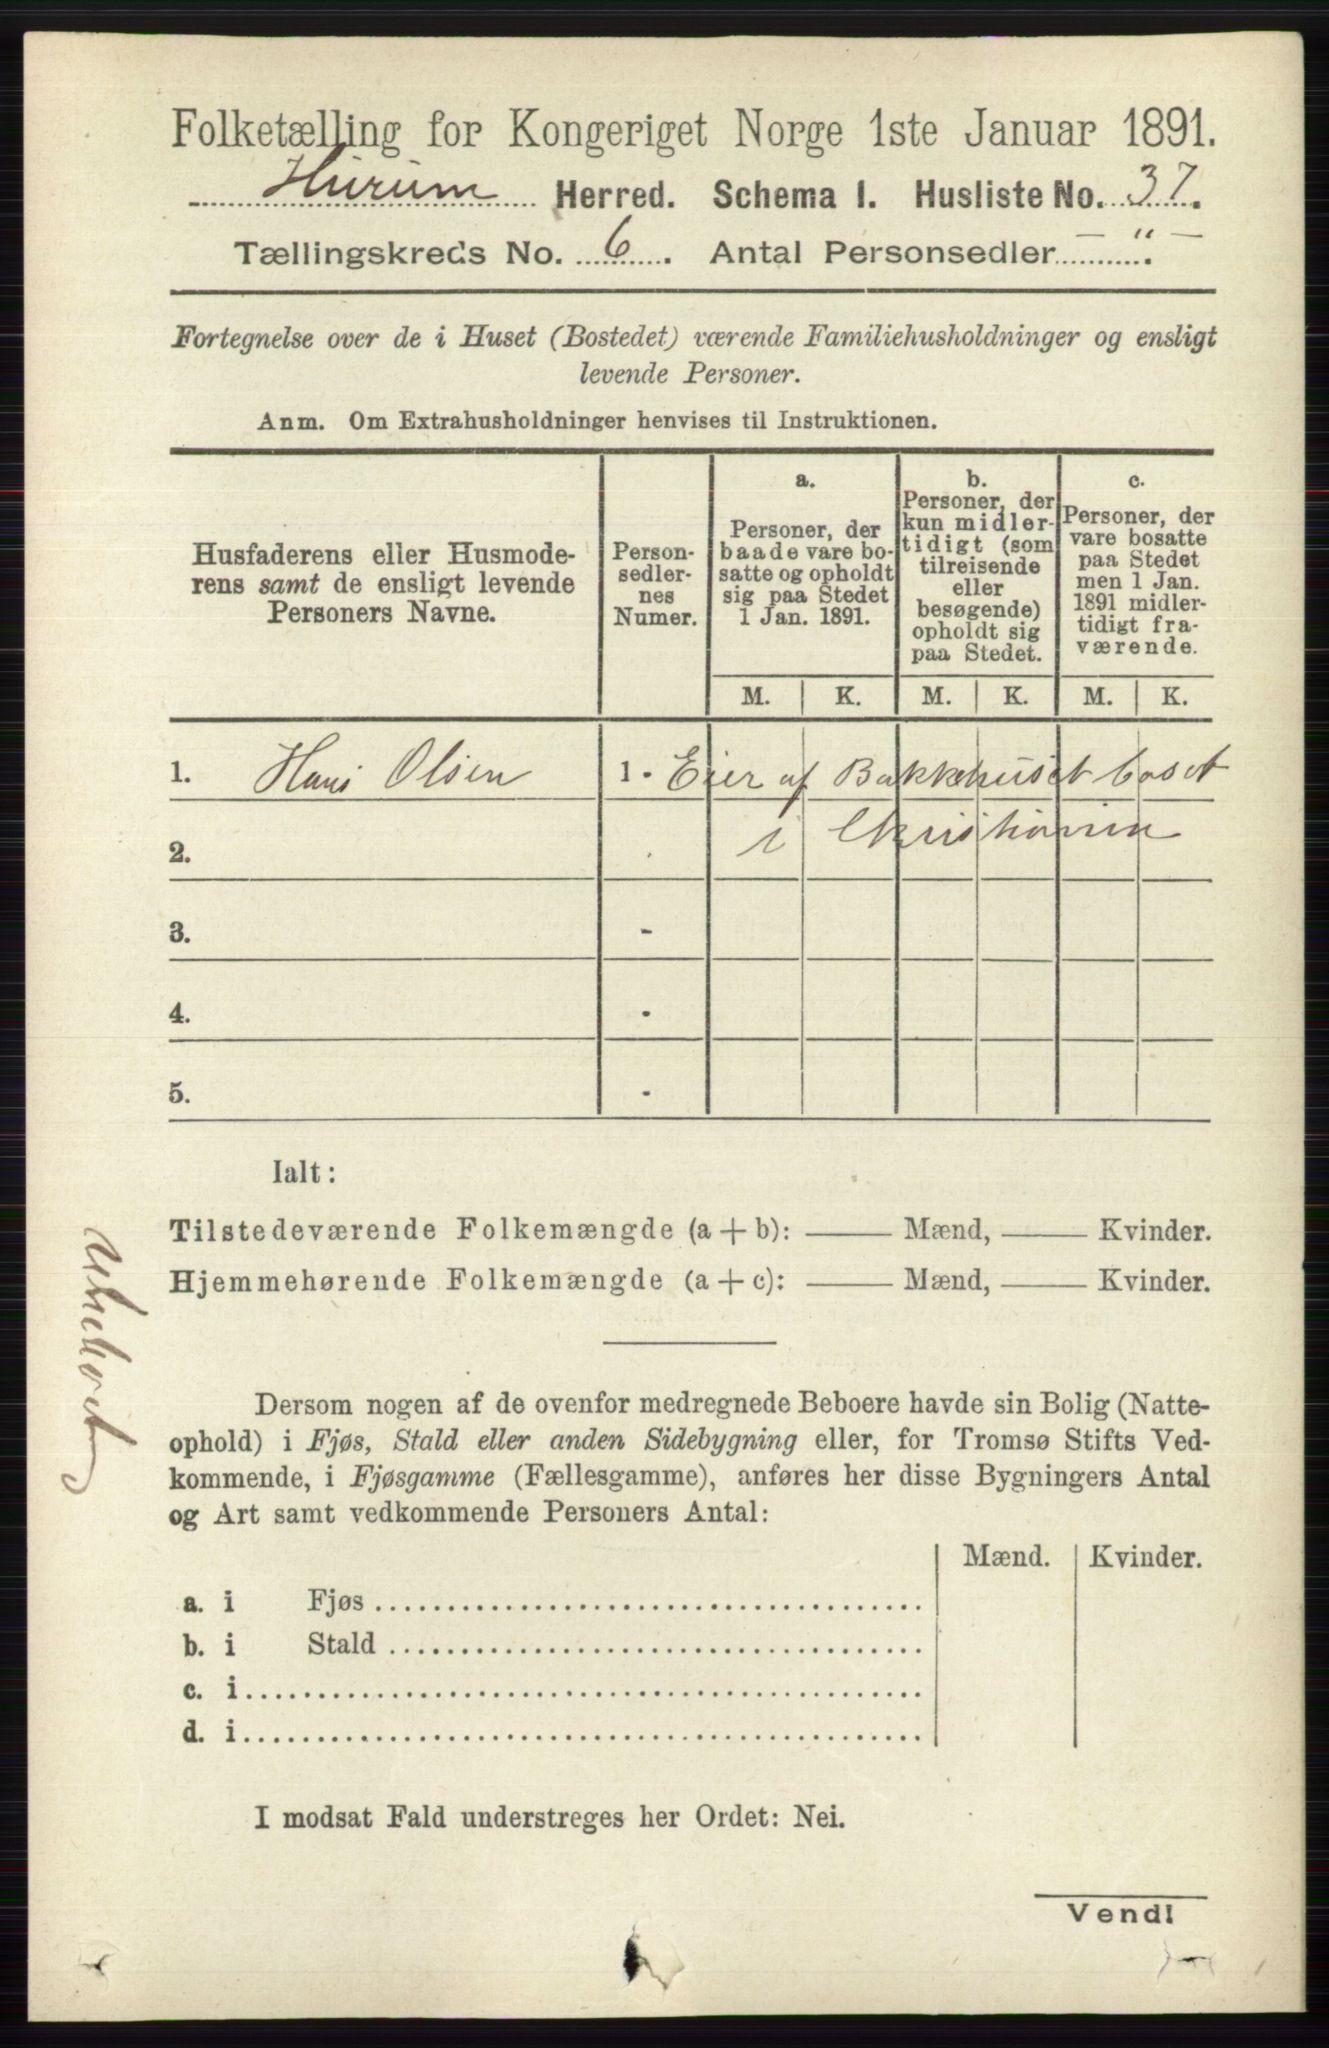 Folketælling for Kongeriget Norge 1ste Januar 1891.
Hurum Herred. Schema I. Husliste No. 37.
Tællingskreds No. 6. Antal Personsedler — " —
Fortegnelse over de i Huset (Bostedet) værende Familiehusholdninger og ensligt
levende Personer.
Anm. Om Extrahusholdninger henvises til Instruktionen.
Husfaderens eller Husmode-
rens samt de ensligt levende
Personers Navne.
Person-
sedler-
nes
Numer.
a.
Personer, der
baade vare bo-
satte og opholdt
sig paa Stedet
1 Jan. 1891.
b.
Personer, der
kun midler-
tidigt (som
tilreisende
eller
besøgende)
opholdt sig
paa Stedet.
c.
Personer, der
vare bosatte
paa Stedet
men 1 Jan.
1891 midler-
tidigt fra-
værende.
M. K. M. K. M. K.
1. Hans Olsen 1 - Eier af Bakkehuset bosat
2. i Christiania
3. -
4. -
5. -
Ialt:
Tilstedeværende Folkemængde (a + b): — Mænd, — Kvinder.
Hjemmehørende Folkemængde (a + c): — Mænd, — Kvinder.
Ubeboet
Dersom nogen af de ovenfor medregnede Beboere havde sin Bolig (Natte-
ophold) i Fjøs, Stald eller anden Sidebygning eller, for Tromsø Stifts Ved-
kommende, i Fjøsgamme (Fællesgamme), anføres her disse Bygningers Antal
og Art samt vedkommende Personers Antal:
Mænd. Kvinder.
a. i Fjøs
b. i Stald
c. i
d. i
I modsat Fald understreges her Ordet: Nei.
Vend!